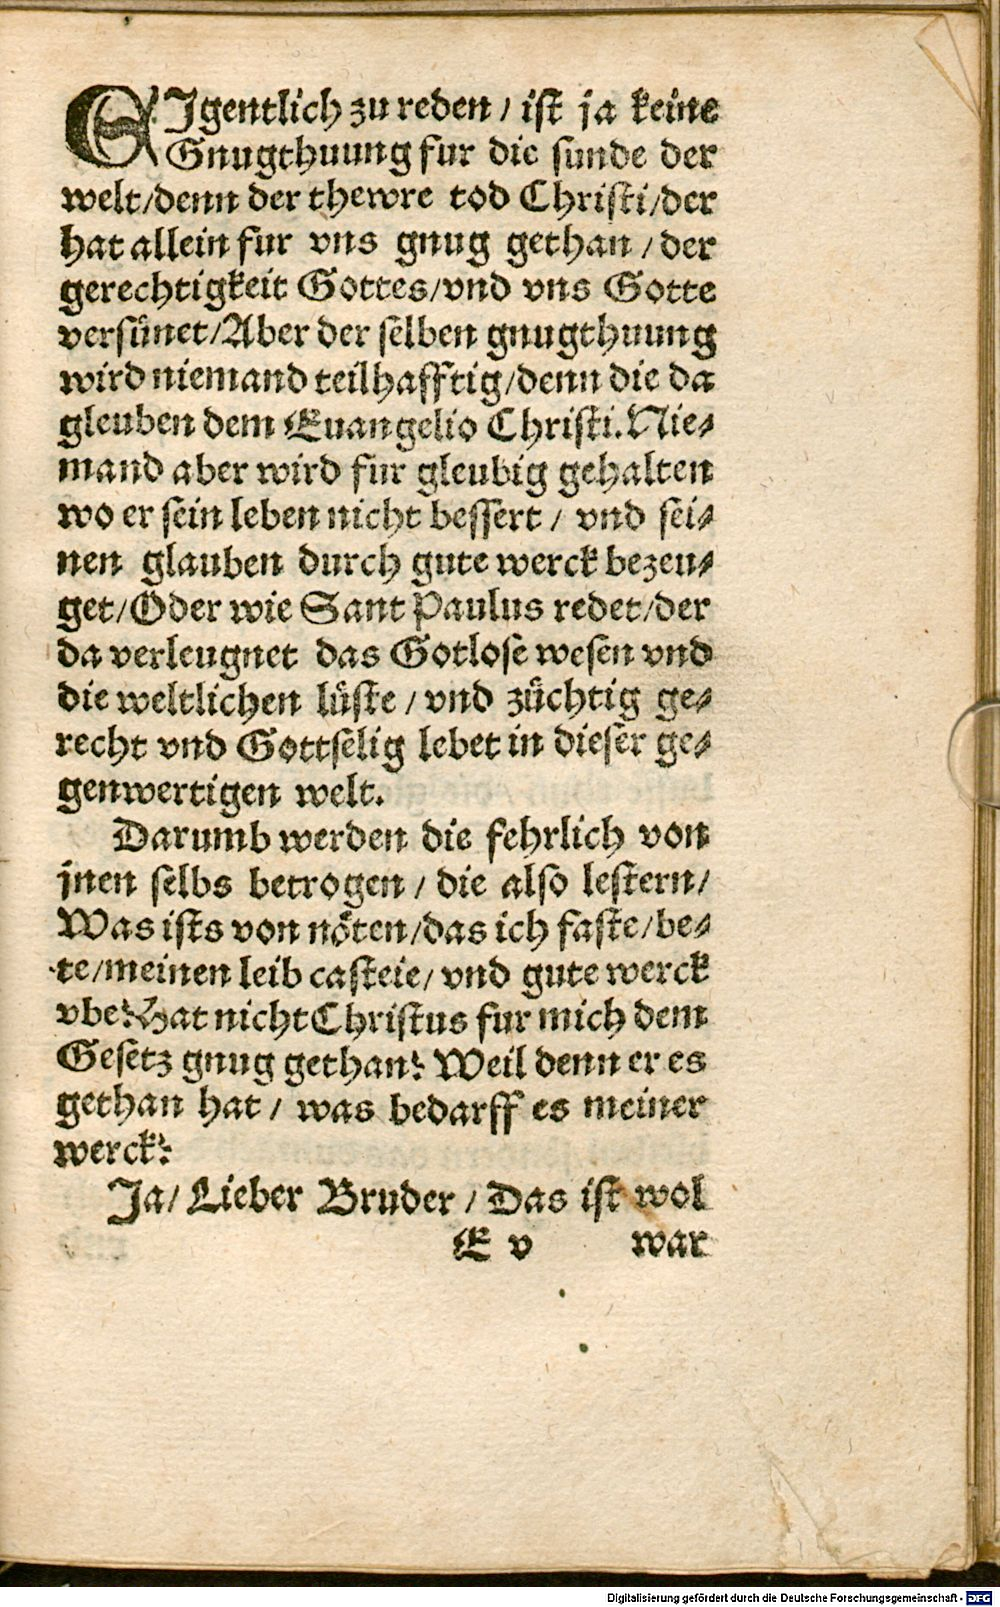 EIgentlich zu reden / ist ja keine
Gnugthuung fur die sunde der
welt/denn der thewre tod Christi/der
hat allein fur vns gnug gethan / der
gerechtigkeit Gottes/vnd vns Gotte
versünet/Aber der selben gnugthuung
wird niemand teilhafftig/denn die da
gleuben dem Euangelio Christi. Nie⸗
mand aber wird fur gleubig gehalten
wo er sein leben nicht bessert / vnd sei⸗
nen glauben durch gute werck bezeu⸗
get/Oder wie Sant Paulus redet/der
da verleugnet das Gotlose wesen vnd
die weltlichen lüste / vnd züchtig ge⸗
recht vnd Gottselig lebet in dieser ge⸗
genwertigen welt.
Darumb werden die fehrlich von
jnen selbs betrogen / die also lestern/
Was ists von nöten/das ich faste/be⸗
te/meinen leib casteie/ vnd gute werck
vbe? Hat nicht Christus fur mich dem
Gesetz gnug gethan? Weil denn er es
gethan hat / was bedarff es meiner
werck?
Ja/ Lieber Bruder / Das ist wol
E v war
Digitalisierung gefördert durch die Deutsche Forschungsgemeinschaft - DFG